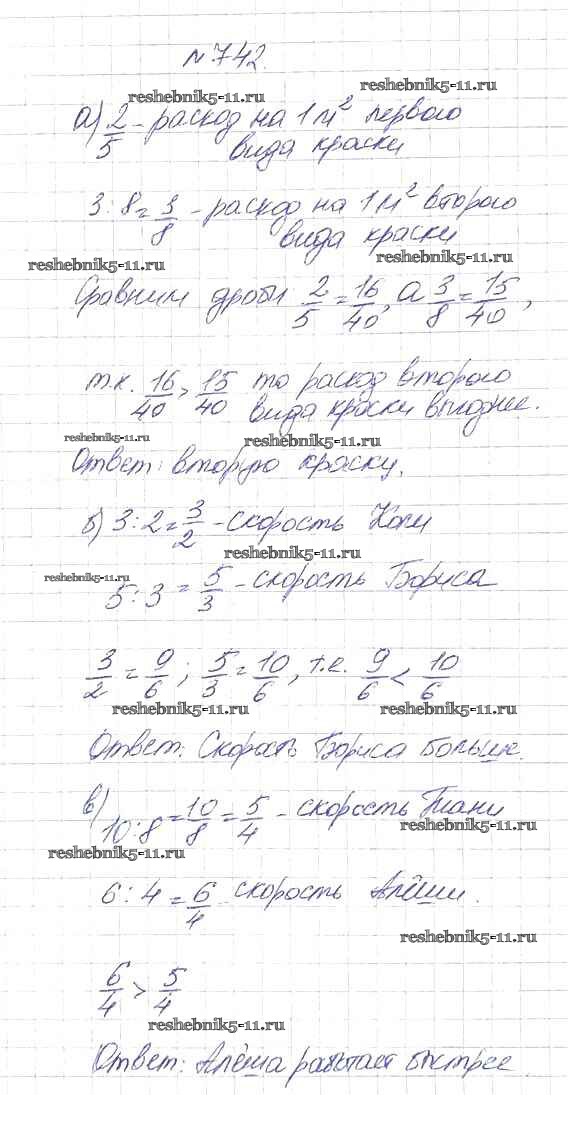 №742.
reshebnik5-11.ru
reshebnik5-11.ru
а) 2/5 - расход на 1м² первого
вида краски
3:8=3/8 - расход на 1м² второго
вида краски
reshebnik5-11.ru
reshebnik5-11.ru
Сравним дроби 2/5=16/40, а 3/8=15/40,
т.к. 16/40>15/40 то расход второго
вида краски выгоднее.
reshebnik5-11.ru
reshebnik5-11.ru
Ответ: вторую краску.
б) 3:2=3/2 - скорость Коли
reshebnik5-11.ru
reshebnik5-11.ru
5:3=5/3 - скорость Бориса
3/2=9/6; 5/3=10/6, т.е. 9/6<10/6
reshebnik5-11.ru
reshebnik5-11.ru
Ответ: Скорость Бориса больше.
в) 10:8=10/8=5/4 - скорость Тани
reshebnik5-11.ru
reshebnik5-11.ru
6:4=6/4 скорость Алёши.
reshebnik5-11.ru
6/4>5/4
reshebnik5-11.ru
Ответ: Алёша работает быстрее